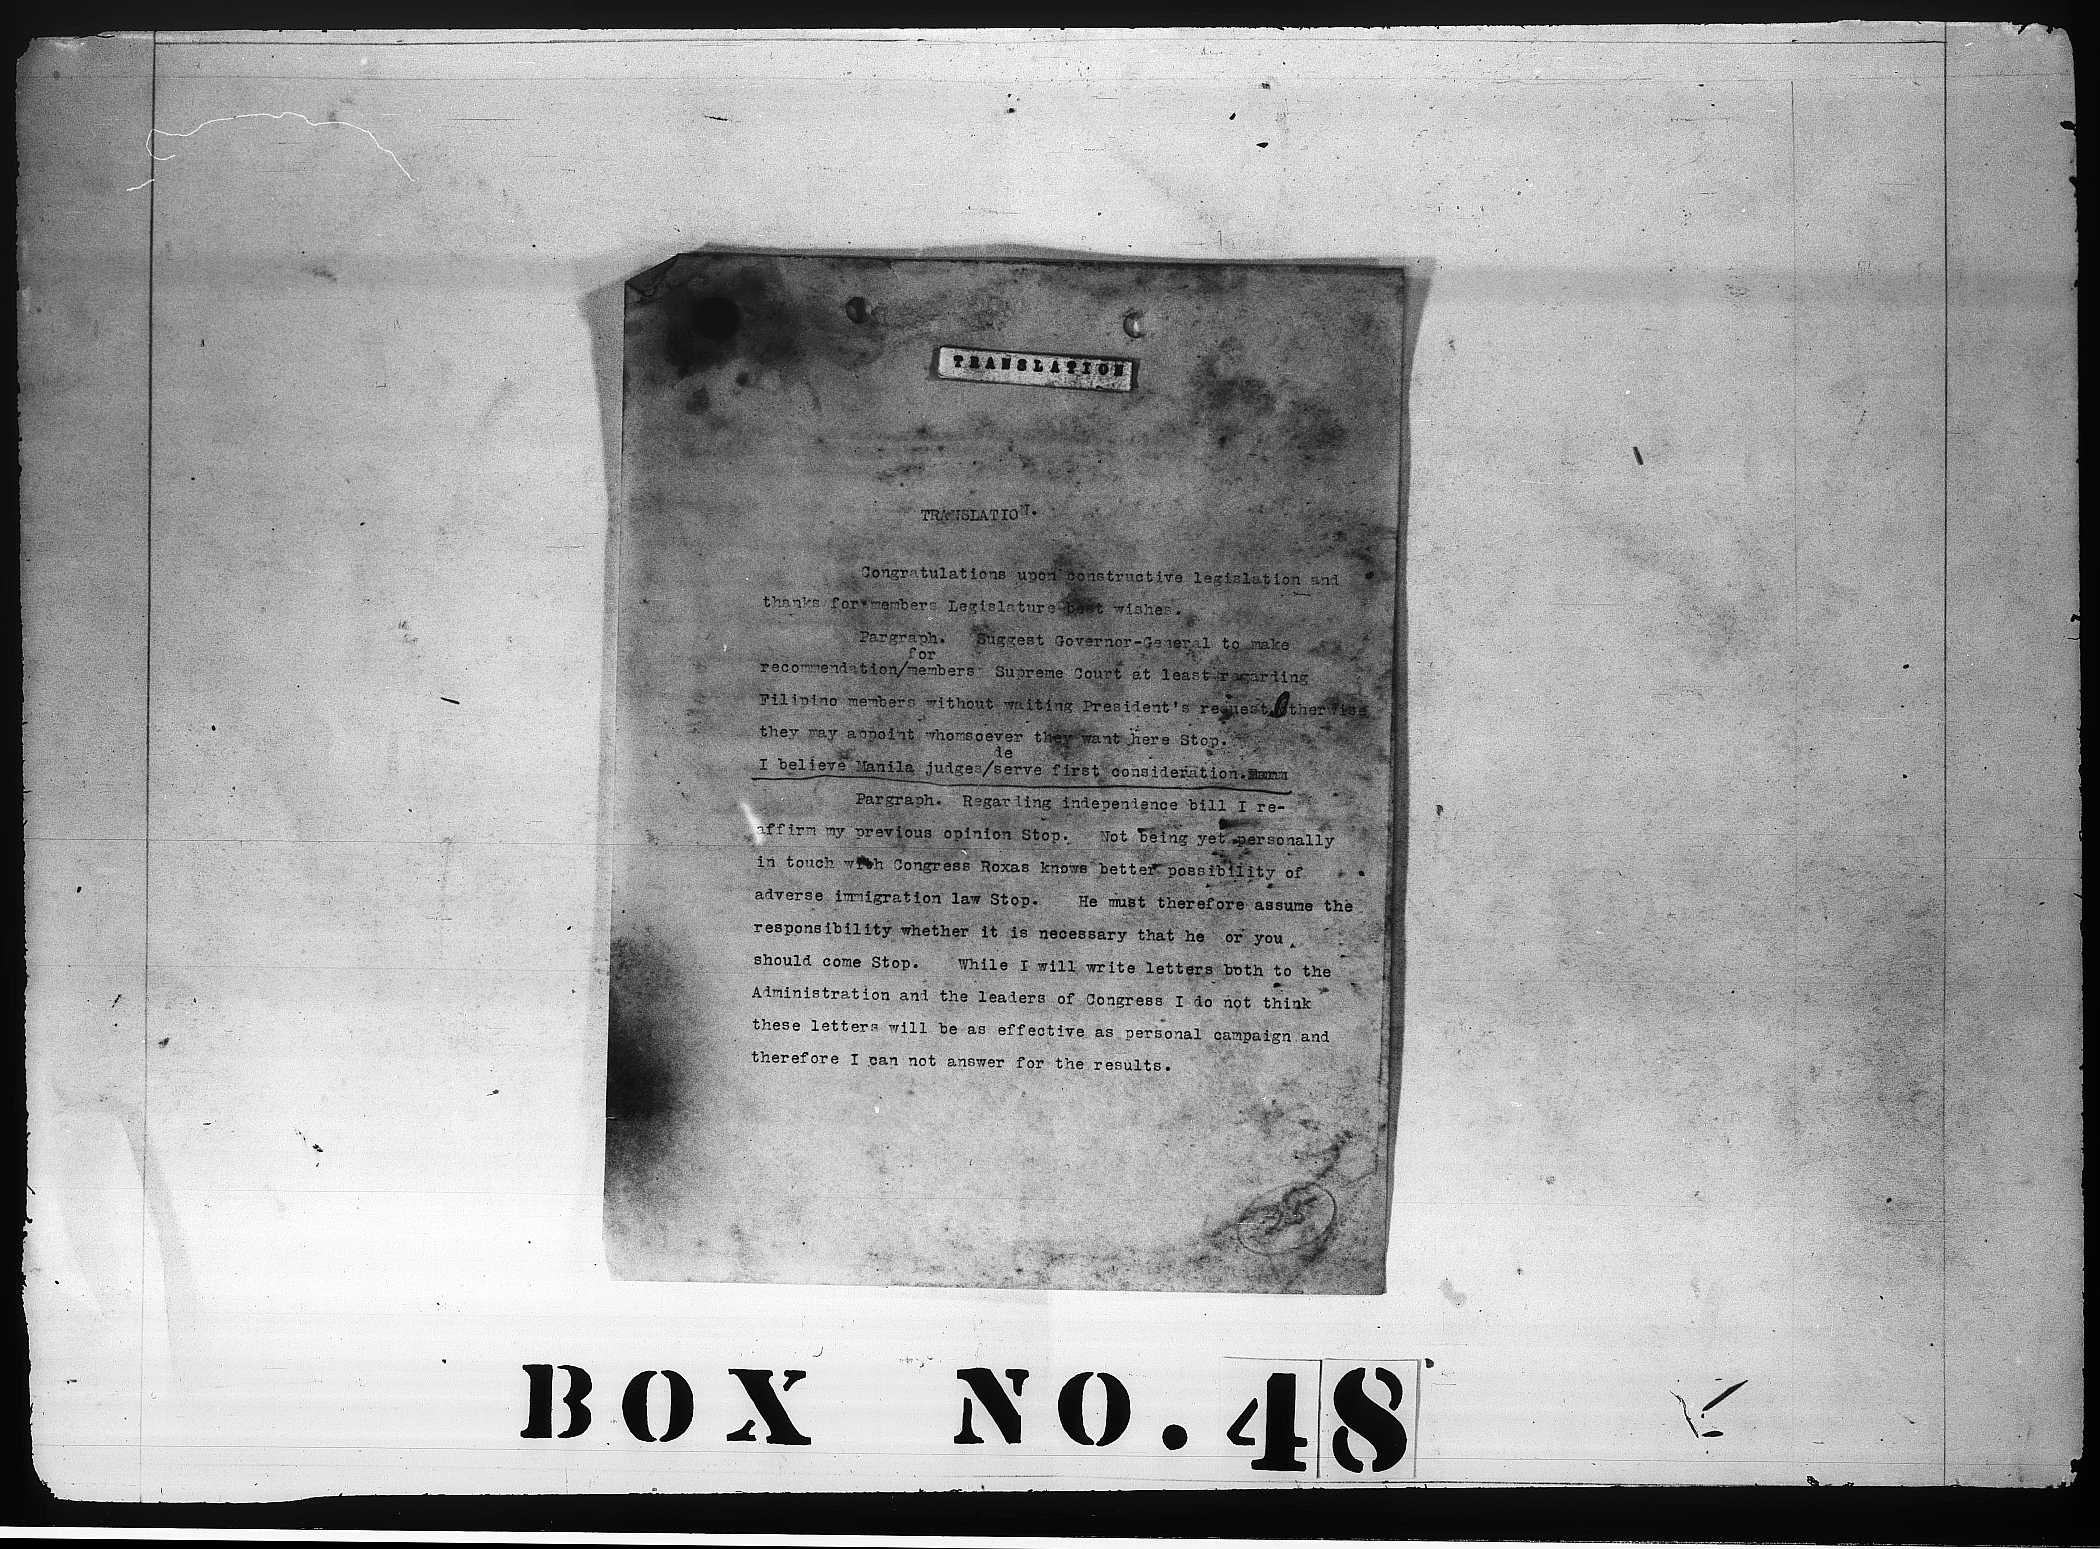 TRANSLATION
TRANSLATION.
Congratulations upon constructive legislation and
thanks for members Legislature best wishes.
Pargraph. Suggest Governor-General to make
for
recommendation/members Supreme Court at least regarding
Filipino members without waiting President's request Otherwise
they may appoint whomsoever they want here Stop.
de
I believe Manila judges/serve first consideration.
Pargraph. Regarding independence bill I re-
affirm my previous opinion Stop. Not being yet personally
in touch with Congress Roxas knows better possibility of
adverse immigration law Stop. He must therefore assume the
responsibility whether it is necessary that he or you
should come Stop. While I will write letters both to the
Administration and the leaders of Congress I do not think
these letters will be as effective as personal campaign and
therefore I can not answer for the results.
25
BOX NO. 48